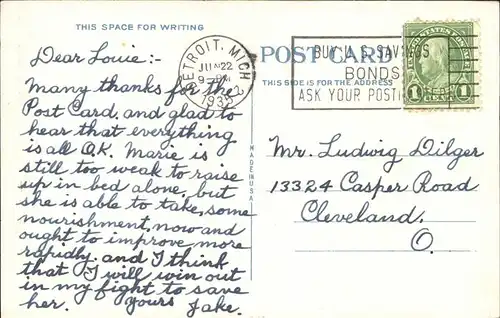 THIS SPACE FOR WRITING
Dear Louie:-
Many thanks for the
Post Card, and glad to
hear that everything
is all O.K. Marie is
still too weak to raise
up in bed alone, but
she is able to take, some
nourishment, now and
ought to improve more
rapidly. and I think
that I will win out
in my fight to save
her. Yours Jake.
DETROIT, MICH
JUN 22
PM
1935
BUY U.S. SAVINGS
BONDS
ASK YOUR
POST CARD
THIS SIDE IS FOR THE ADDRESS
UNITED STATES POSTAGE
1 1
MADE IN U.S.A.
Mr. Ludwig Dilger
13324 Casper Road
Cleveland.
O.